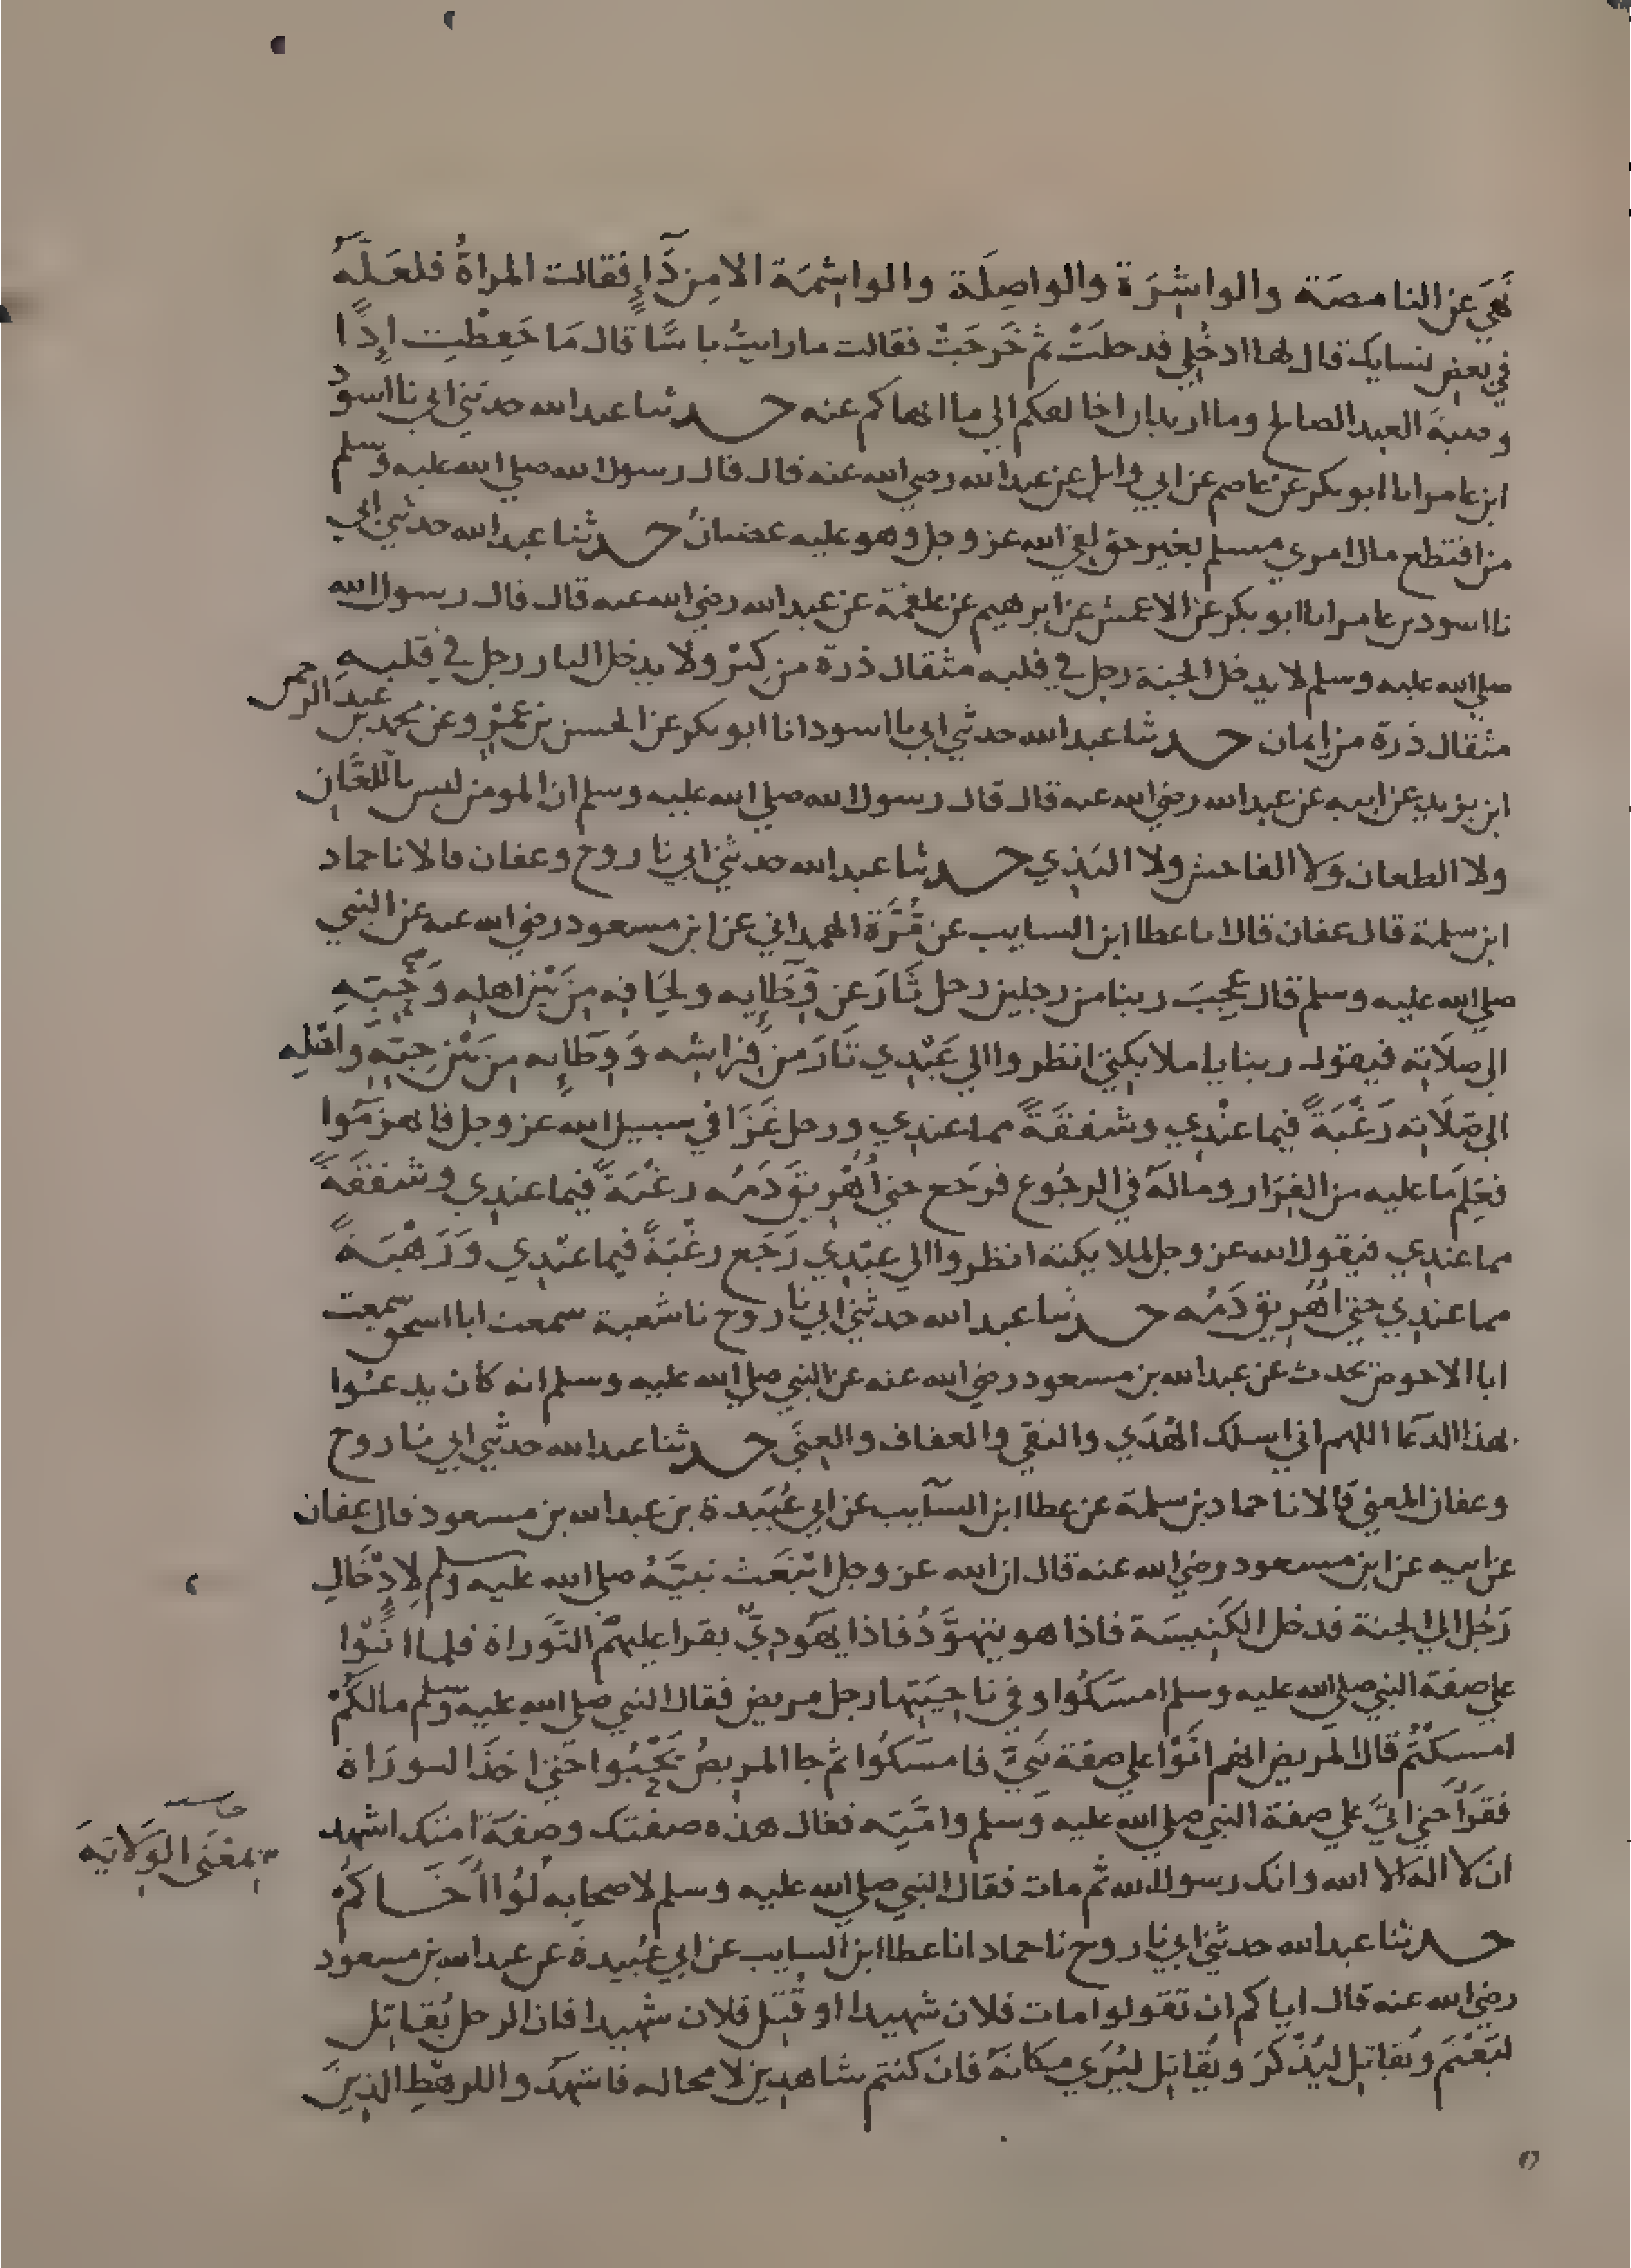 نَهَى عن النامصَة والواشِرَة والواصِلَة والواشِمَة الا مِن دَآءٍ فقالت المراةُ فلعَلَّهُ
في بعض نسايك قال لها ادخُلي فدخلَتْ ثم خَرجَتْ فقالت ما رايتُ باسًا قال مَا حَفِظْتُ اِذًا
وصيةَ العبد الصالح وما اريد ان اخالفكم الي ما انهاكم عنه حدثنا عبد الله حدثني ابي نا اسودُ
ابن عامر انا ابو بكر عن عاصم عن ابي وايل عن عبد الله رضي الله عنه قال قال رسول الله صلي الله عليه وسلم
من اقتطع مال امري مسلم بغير حق لقي الله عز وجل وهو عليه غضبانُ حدثنا عبد الله حدثني ابي
نا اسود بن عامر انا ابو بكر عن الاعمش عن ابرهيم عن علقمة عن عبد الله رضي الله عنه قال قال رسول الله
صلي الله عليه وسلم لا يدخل الجنة رجل في قلبه مثقال ذرة من كِبْر ولا يدخل النار رجل في قلبه
مثقال ذرة من ايمان حدثنا عبد الله حدثني ابي نا اسود انا ابو بكر عن الحسن بن عَمْرٍو عن محمد بن عبد الرحمن
ابن يزيد عن ابيه عن عبد الله رضي الله عنه قال قال رسول الله صلي الله عليه وسلم ان المومن ليس باللعَّان
ولا الطعان ولا الفاحش ولا البَذِي حدثنا عبد الله حدثني ابي نا روح وعفان قالا نا حماد
ابن سلمة قال عفان قال انا عطا ابن السايب عن مُرَّة الهمداني عن ابن مسعود رضي الله عنه عن النبي
صلي الله عليه وسلم قال عَجِبَ ربنا من رجلين رجل ثَارَ عن وِطَايِه ولِحَافِه مِن بَيْن اهله وَحِبِّهِ
الى صلَاتِه فيقول ربنا يا ملايكتي انظروا الي عَبْدِي ثَارَ من فِراشِه وَوِطَايِه مِن بَيْن حِبِّهِ واهْلِهِ
الى صلَاتِه رَغْبَةً فيما عنْدِي وشفقَةً مما عندي ورجل غَزَا في سبيل الله عز وجل فانهزَمُوا
فعَلِمَ مَا عليه من الفِرَار وما لَهُ في الرجُوع فرجَع حتي اُهْرِيقَ دَمُه رغْبَةً فيما عندي وشفقَةً
مما عندي فيقول الله عز وجل لملايكته انظروا الي عبْدِي رَجَع رغْبَةً فيما عنْدِي وَرَهْبَةً
مما عندِي حتي اُهْرِيقَ دَمُه حدثنا عبد الله حدثني ابي نا روح نا شعبة سمعت ابا اسحق سمعت
ابا الاحوص يحدث عن عبد الله بن مسعود رضي الله عنه عن النبي صلي الله عليه وسلم انه كان يدعُوا
بهذا الدعَا اللهم اني اسلك الهُدَي والتقي والعفاف والغِنَي حدثنا عبد الله حدثني ابي نا روح
وعفان المعني قالا نا حماد بن سلمة عن عطا ابن السآيب عن ابي عُبَيدة بن عبد الله بن مسعود قال عفان
عن ابيه عن ابن مسعود رضي الله عنه قال ان الله عز وجل ابْتَعَث نبيَّهُ صلي الله عليه وسلم لاِدْخَالِ
رَجُل الي الجنة فدخل الكَنِيسَة فاذا هو بيَهوَّدُ فاذا يَهُودِيٌّ يقرا عليهمُ التَّوراة فلما اتَوْا
علي صفة النبي صلي الله عليه وسلم امسَكُوا وفي ناحِيَتِها رجل مريض فقال النبي صلي الله عليه وسلم مالكُمْ
امسكْتُم قال المريض انهم اتَوْا علي صفة نَبِيٍّ فامسَكُوا ثم جا المريضُ يَحْبُوا حتي اخذَ التوراة
فقرَأَ حتي اتَي علي صفة النبي صلي الله عليه وسلم وامَّتِه فقال هذه صفتك وصفَةُ امتك اشهد
ان لا اله الا الله وانك رسول الله ثم مات فقال النبي صلي الله عليه وسلم لاصحابِه لُوا اَخَاكمْ
حاشية بمعْنَى الوَلَايَة
حدثنا عبد الله حدثني ابي نا روح نا حماد انا عطا ابن السايب عن ابي عُبَيدة عن عبد الله بن مسعود
رضي الله عنه قال اياكم ان تقولوا مات فلان شهيدا او قُتِل فلان شهيدا فان الرجل يُقَاتِل
ليَغْنَم ويُقاتِل ليُذْكَرَ ويُقاتِل ليُرَي مكانَهُ فان كنتم شاهدِين لا محاله فاشهَدُوا للرهْطِ الذِينَ